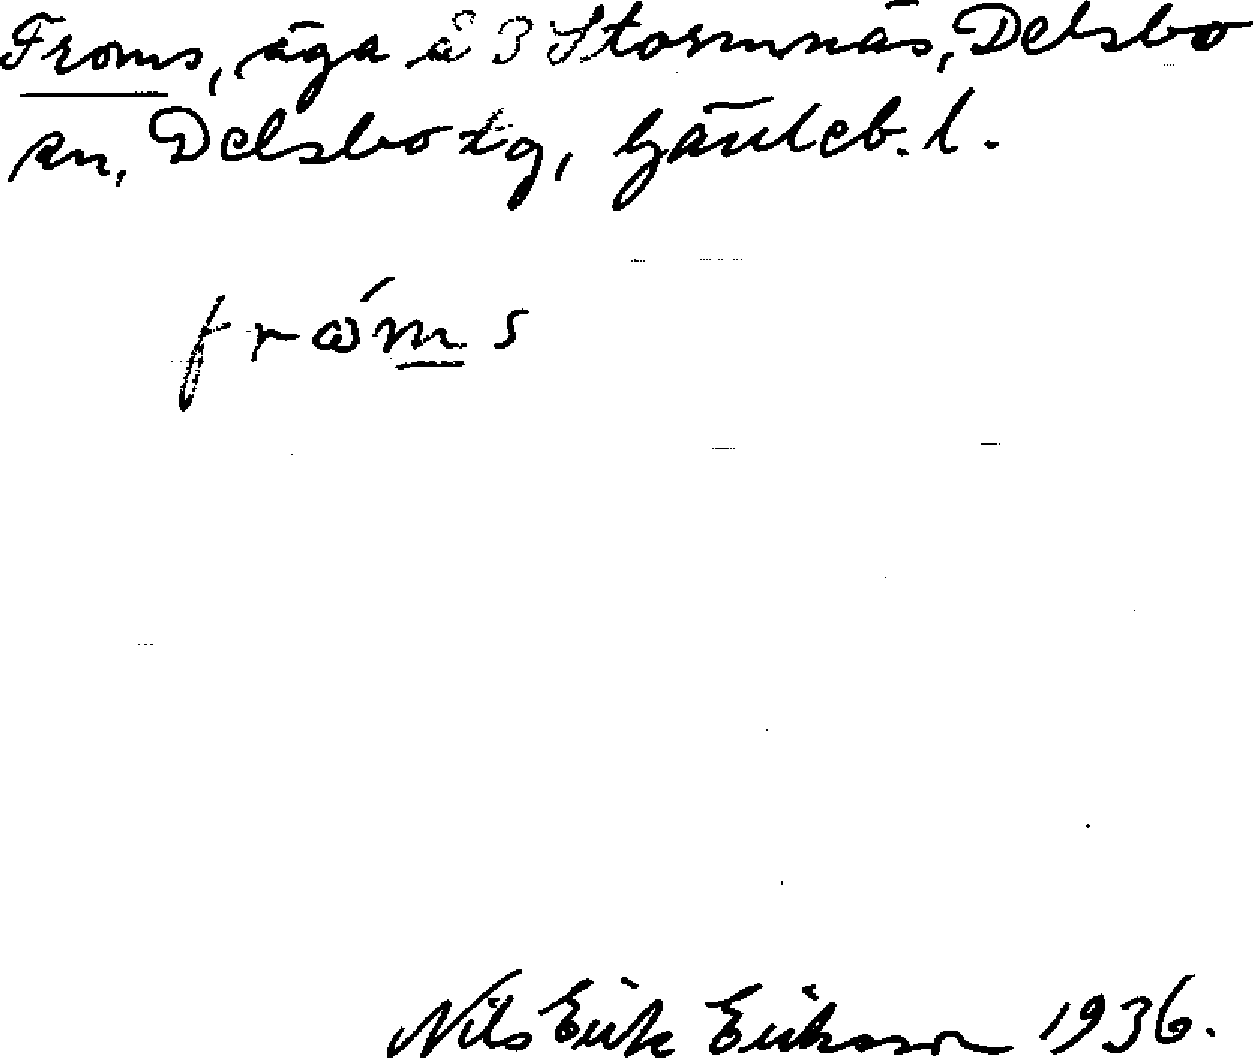 Froms, äga å 3 Stormnäs, Delsbo
sn, Delsbo tg, Gävleb. l.
frὼm̲s
Nils Erik Eriksson 1936.